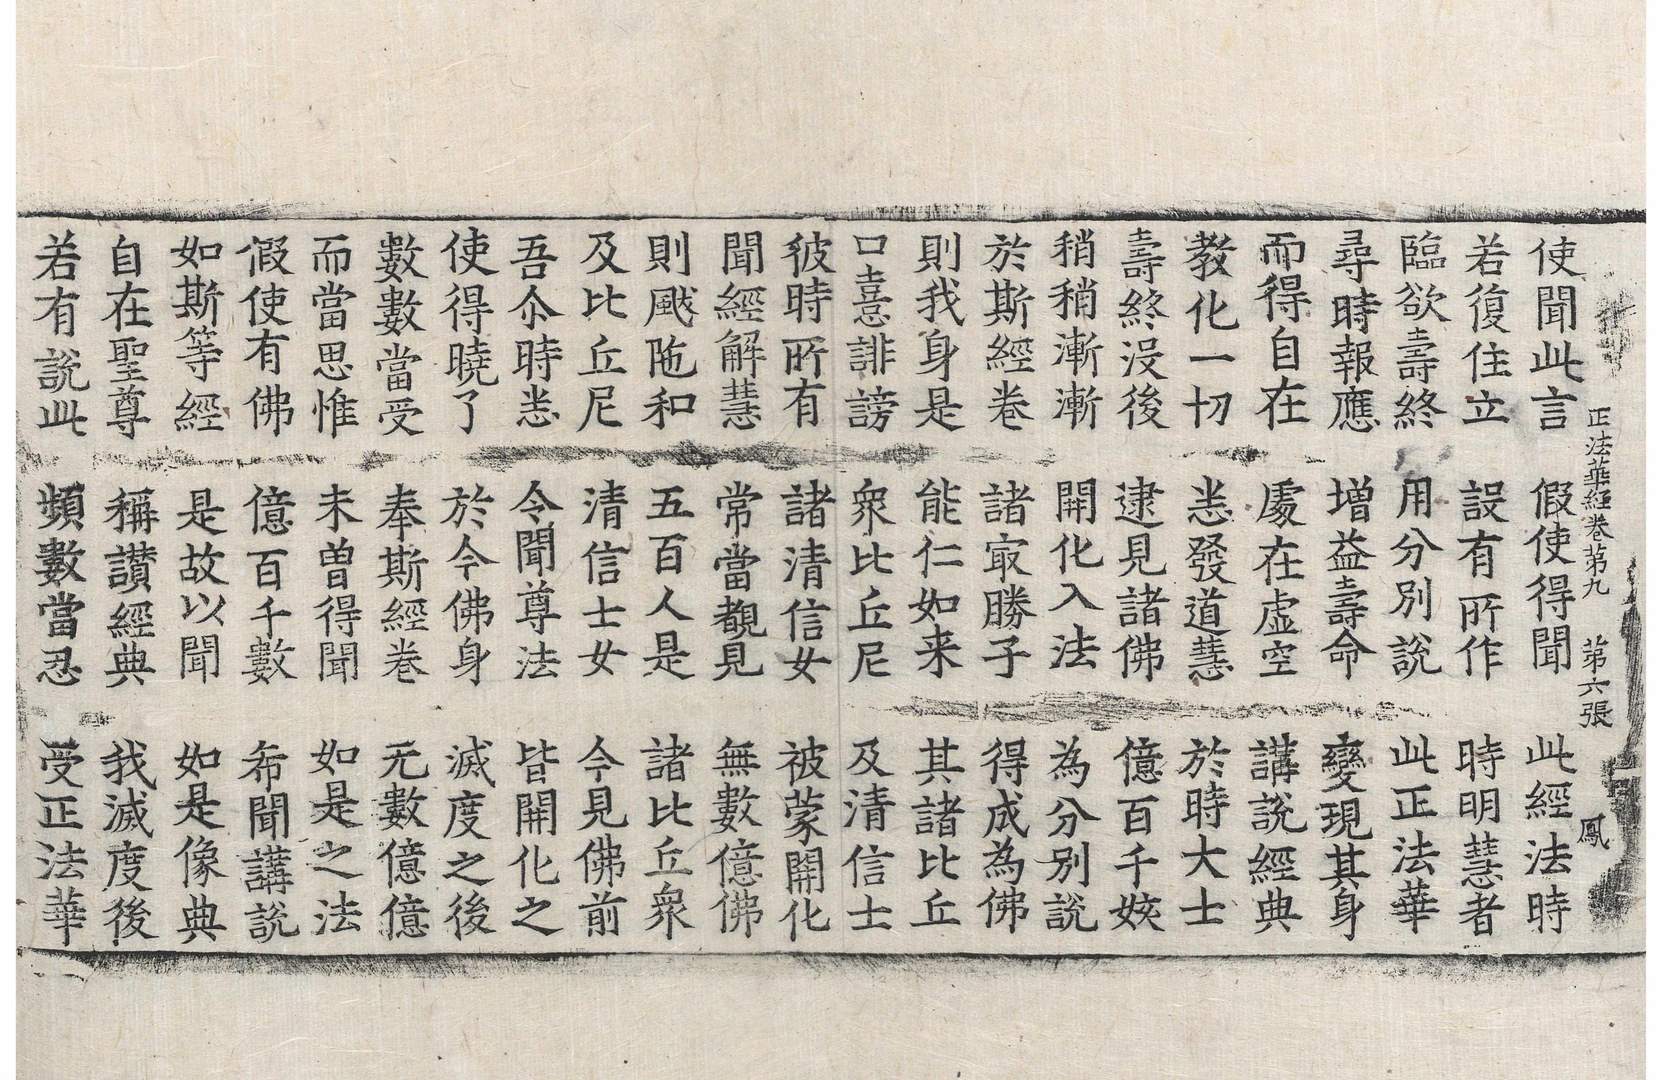 正法華經卷第九 第六張 鳳
使聞此言 假使得聞 此經法時
若復住立 設有所作 時明慧者
臨欲壽終 用分別說 此正法華
尋時報應 增益壽命 變現其身
而得自在 處在虛空 講說經典
教化一切 悉發道慧 於時大士
壽終沒後 逮見諸佛 億百千姟
稍稍漸漸 開化入法 為分別說
於斯經卷 諸冣勝子 得成為佛
則我身是 能仁如来 其諸比丘
口憙誹謗 眾比丘尼 及清信士
彼時所有 諸清信女 被蒙開化
聞經解慧 常當覩見 無數億佛
則颰陁和 五百人是 諸比丘眾
及比丘尼 清信士女 今見佛前
吾尒時悉 令聞尊法 皆開化之
使得曉了 於今佛身 滅度之後
數數當受 奉斯經卷 无數億億
而當思惟 未曾得聞 如是之法
假使有佛 億百千數 希聞講說
如斯等經 是故以聞 如是像典
自在聖尊 稱讚經典 我滅度後
若有說此 頻數當忍 受正法華